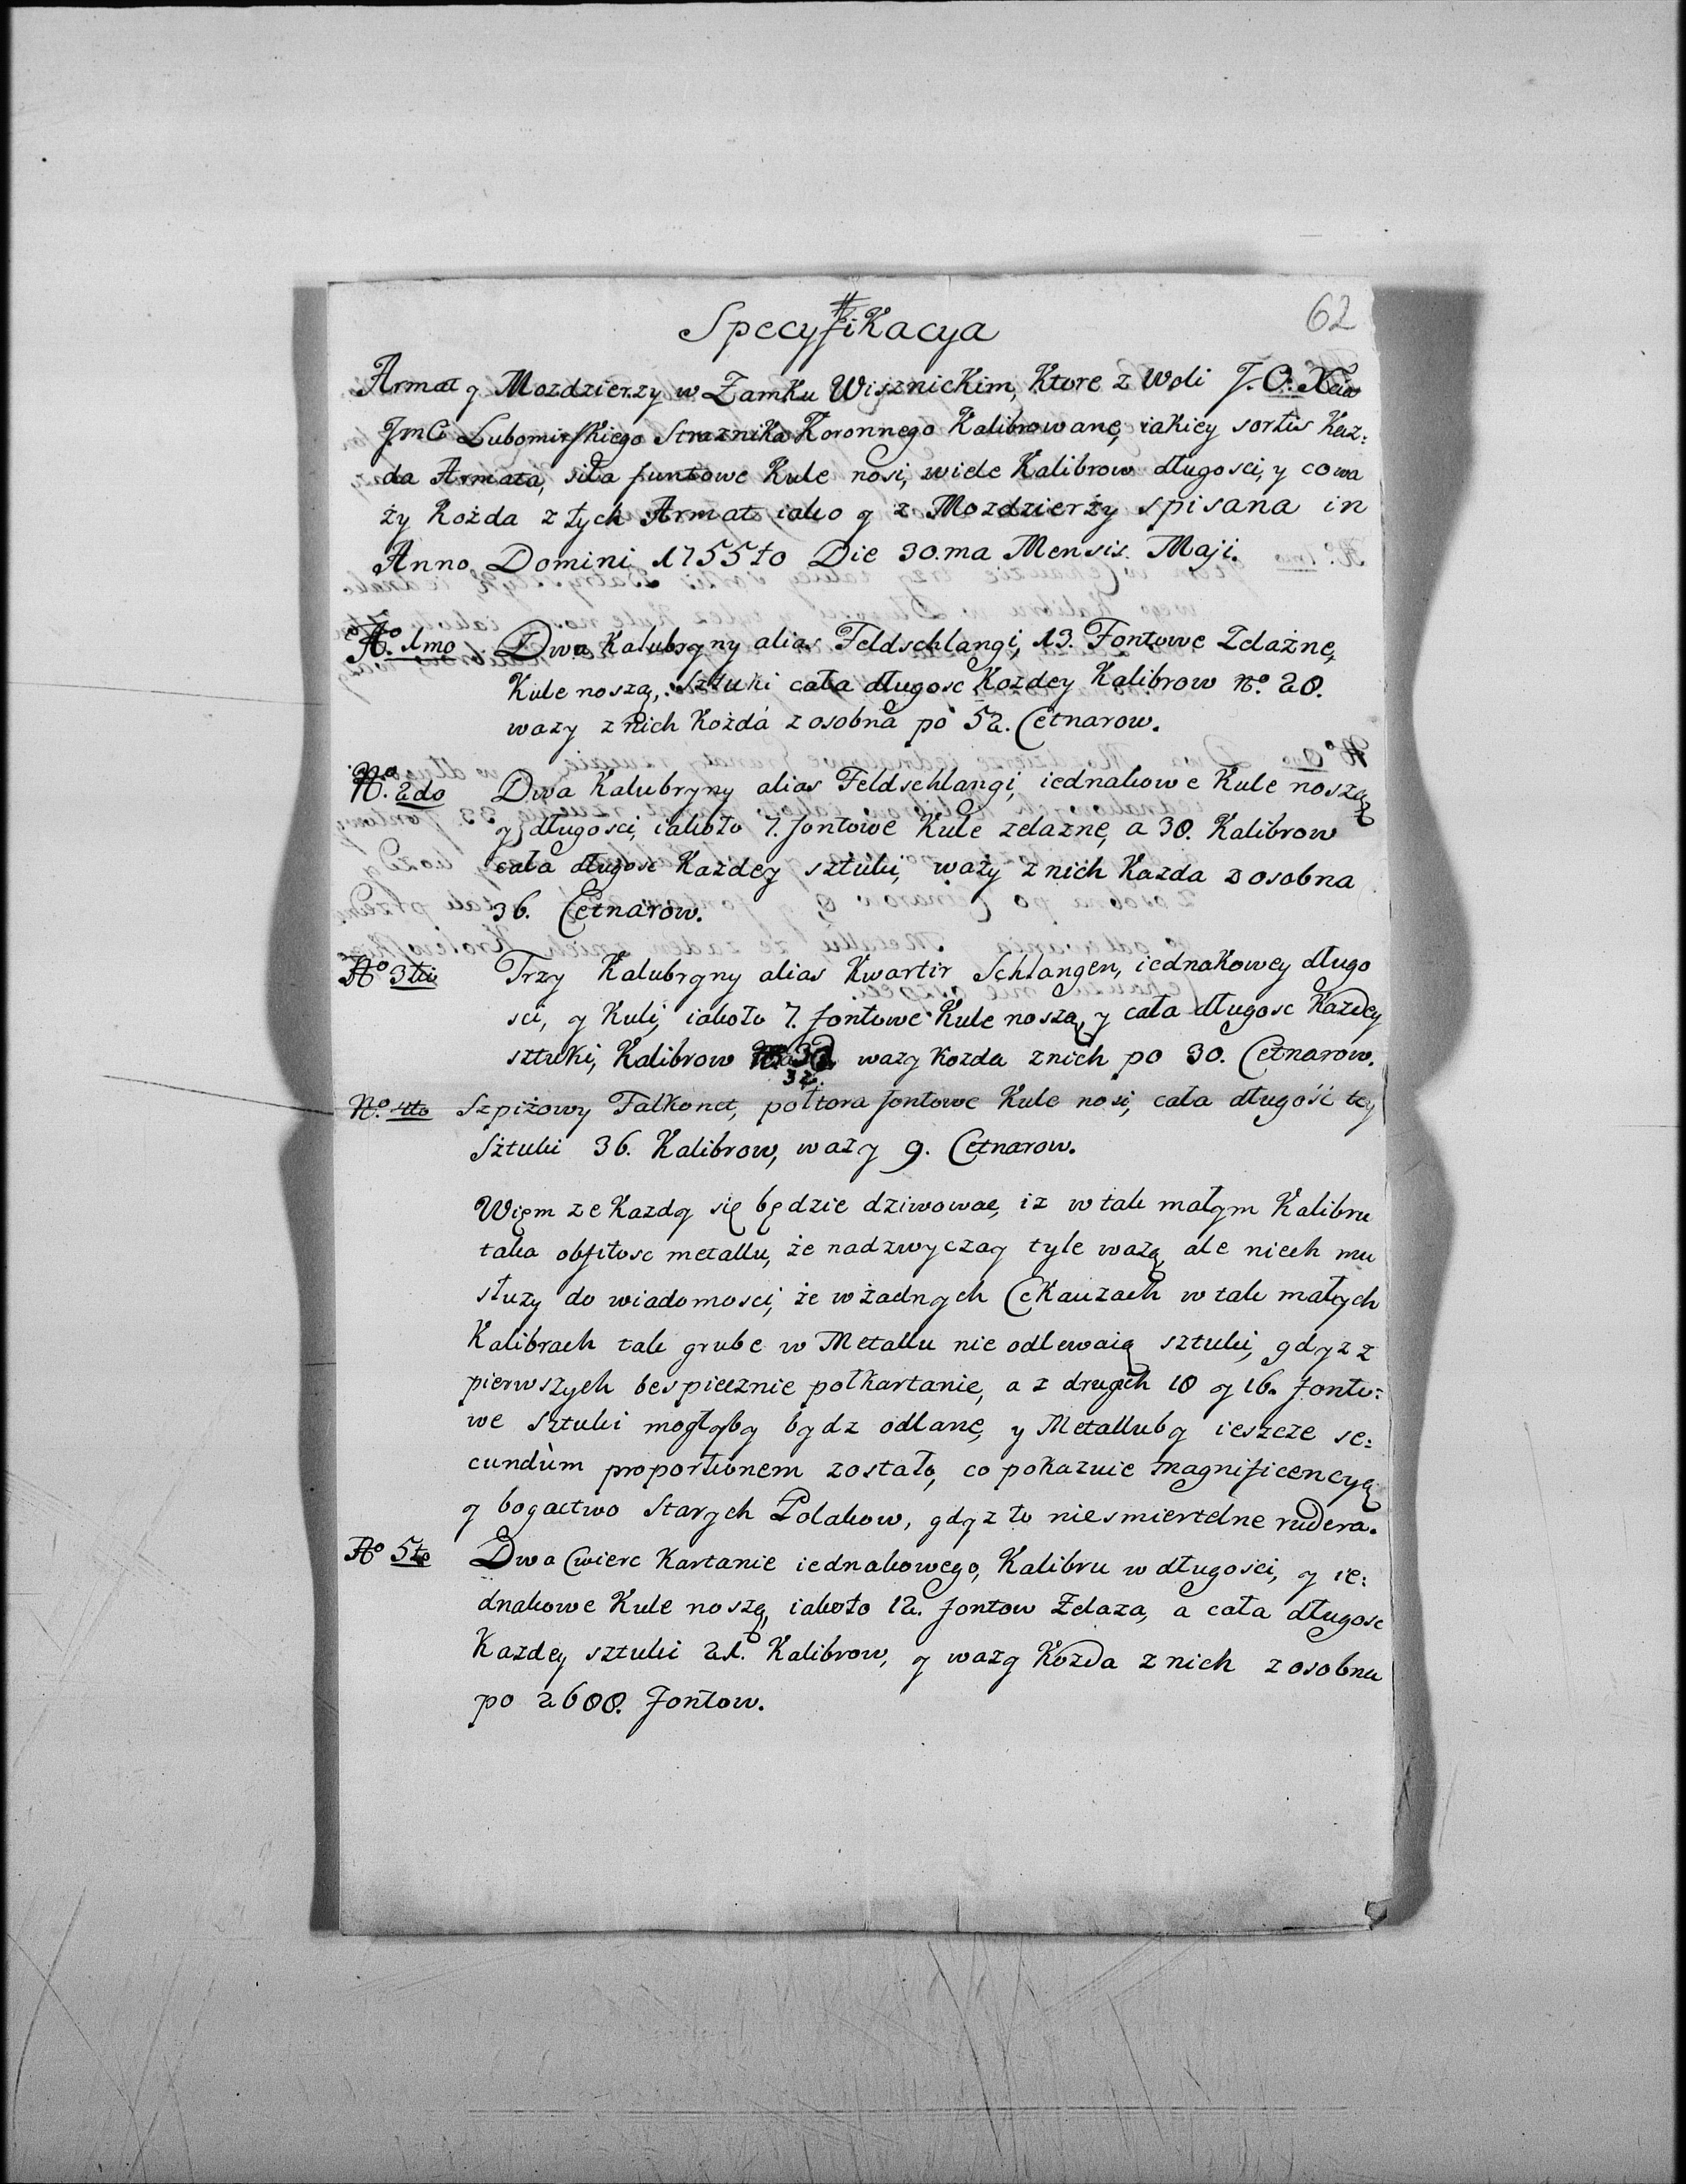 62
Specyfikacya
Armat y Mozdzierzy w Zamku Wisznickim, Ktore z Woli J. O. Xcia
JmC Lubomirskiego Straznika Koronnego Kalibrowane, iakiey sortis Kaz:
da Armata, siła funtowe Kule nosi, wiele Kalibrow długosci, y cowa
ży Kożda z tych Armat iako y z Mozdzierży spisana in
Anno Domini 1755to Die 30.ma Mensis Maji.
No. 1mo Dwa Kalubryny alias Feldschlangi, 13. Fontowe Zelażne,
Kule noszą, Sztuki cała długosc Kozdey Kalibrow No. 20.
wazy z nich Kożda z osobna po 52. Cetnarow.
No. 2do Dwa Kalubryny alias Feldschlangi, iednakowe Kule noszą
y długosci, iakoto 7. fontowe Kule zelazne, a 30. Kalibrow
cała długosc Kazdey sztuki, waży z nich Kazda z osobna
36. Cetnarow.
No 3tio Trzy Kalubryny alias Kwartir Schlangen, iednakowey długo
sci, y Kuli, iakoto 7. fontowe Kule noszą, y cała długosc Każdey
sztuki, Kalibrow wazy Kozda z nich po 30. Cetnarow.
32.
No. 4to Szpiżowy Falkonet, połtora fontowe Kule nosi, cała długość tey
Sztuki 36. Kalibrow, wazy 9. Cetnarow.
Więm ze Kazdy się będzie dziwowac, iz w tak małym Kalibru
taka obfitosc metallu, że nadzwyczay tyle ważą, ale niech mu
służy do wiadomosci, że w żadnych Cekauzach w tak małych
Kalibrach tak grube w Metallu nie odlewaią sztuki, gdyz z
pierwszych bespiecznie połkartanie, a z drugich 18 y 16. fonto:
we Sztuki mogłyby bydz odlane, y Metalluby ieszcze se:
cundùm proportionem zostało, co pokazuie magnificencyą
y bogactwo Starych Polakow, gdyz to niesmiertelne rudera.
No 5te Dwa Cwierc Kartanie iednakowego, Kalibru w długosci, y ie:
dnakowe Kule noszą, iakoto 12. fontow Zelaza, a cała długosc
Kazdey sztuki 21. Kalibrow, y wazy Kozda z nich z osobna
po 2600. fontow.